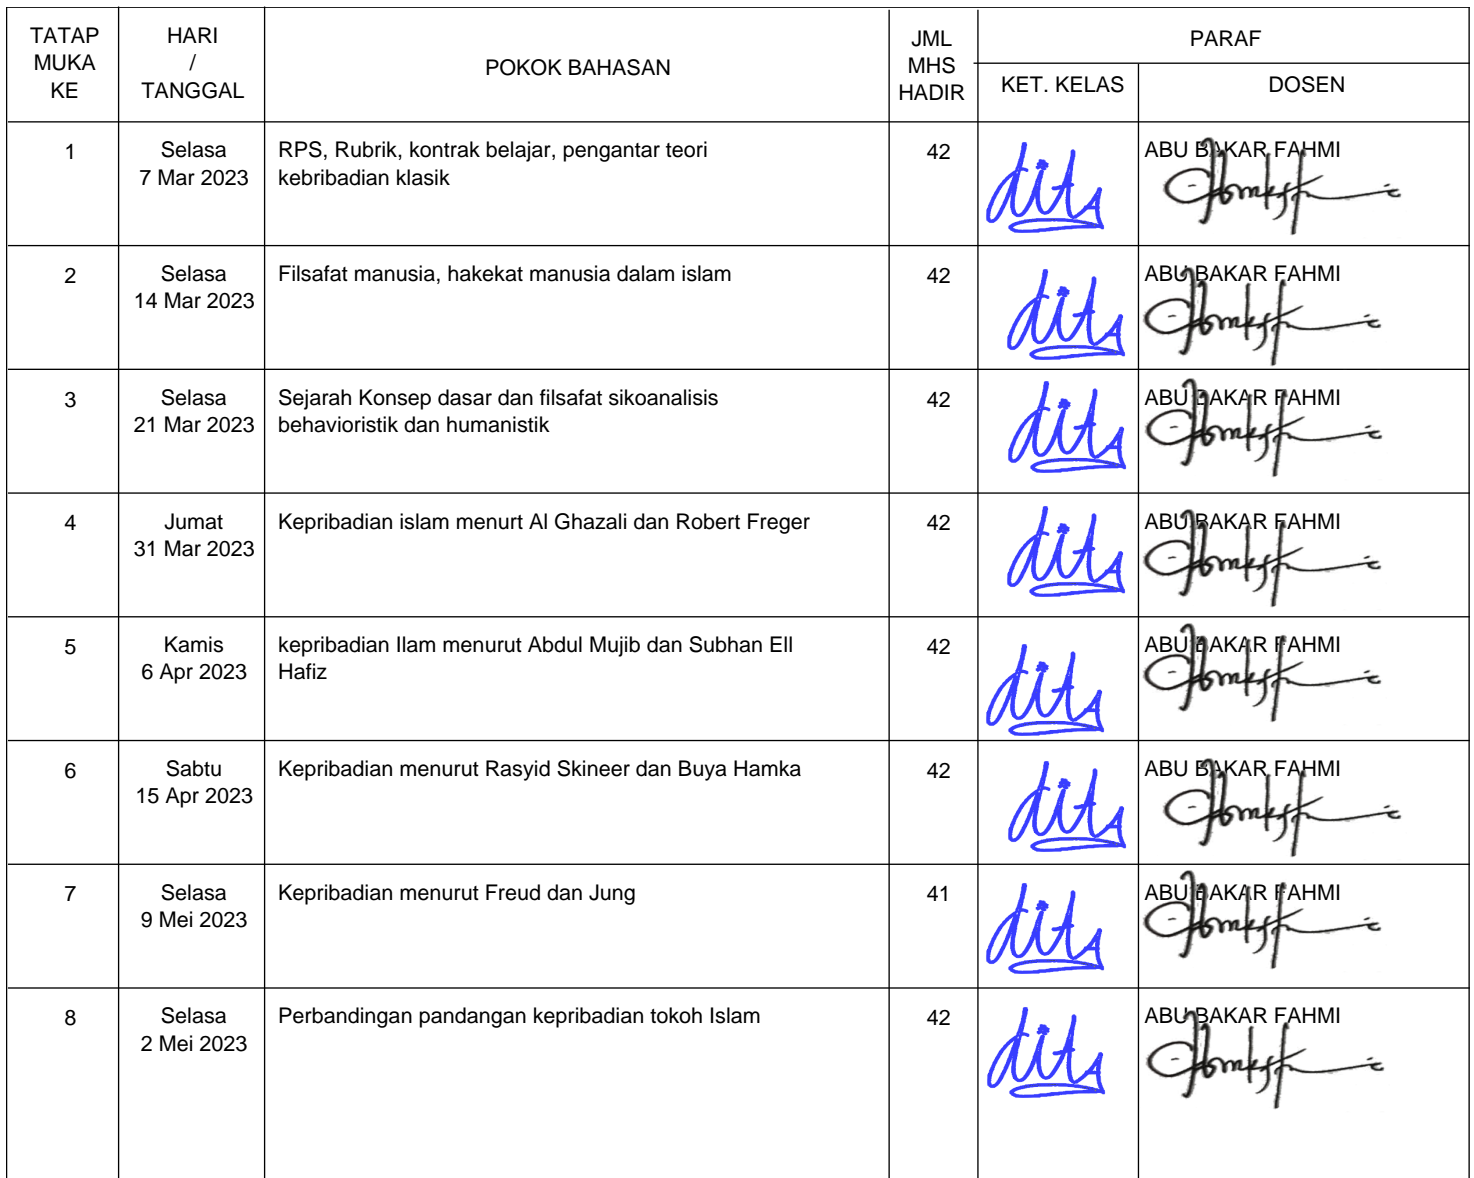 TATAP
MUKA
KE
HARI
/
TANGGAL
POKOK BAHASAN
JML
MHS
HADIR
PARAF
KET. KELAS
DOSEN
1
Selasa
7 Mar 2023
RPS, Rubrik, kontrak belajar, pengantar teori
kebribadian klasik
42
dita
ABU BAKAR FAHMI
2
Selasa
14 Mar 2023
Filsafat manusia, hakekat manusia dalam islam
42
dita
ABU BAKAR FAHMI
3
Selasa
21 Mar 2023
Sejarah Konsep dasar dan filsafat sikoanalisis
behavioristik dan humanistik
42
dita
ABU BAKAR FAHMI
4
Jumat
31 Mar 2023
Kepribadian islam menurt Al Ghazali dan Robert Freger
42
dita
ABU BAKAR FAHMI
5
Kamis
6 Apr 2023
kepribadian Ilam menurut Abdul Mujib dan Subhan Ell
Hafiz
42
dita
ABU BAKAR FAHMI
6
Sabtu
15 Apr 2023
Kepribadian menurut Rasyid Skineer dan Buya Hamka
42
dita
ABU BAKAR FAHMI
7
Selasa
9 Mei 2023
Kepribadian menurut Freud dan Jung
41
dita
ABU BAKAR FAHMI
8
Selasa
2 Mei 2023
Perbandingan pandangan kepribadian tokoh Islam
42
dita
ABU BAKAR FAHMI